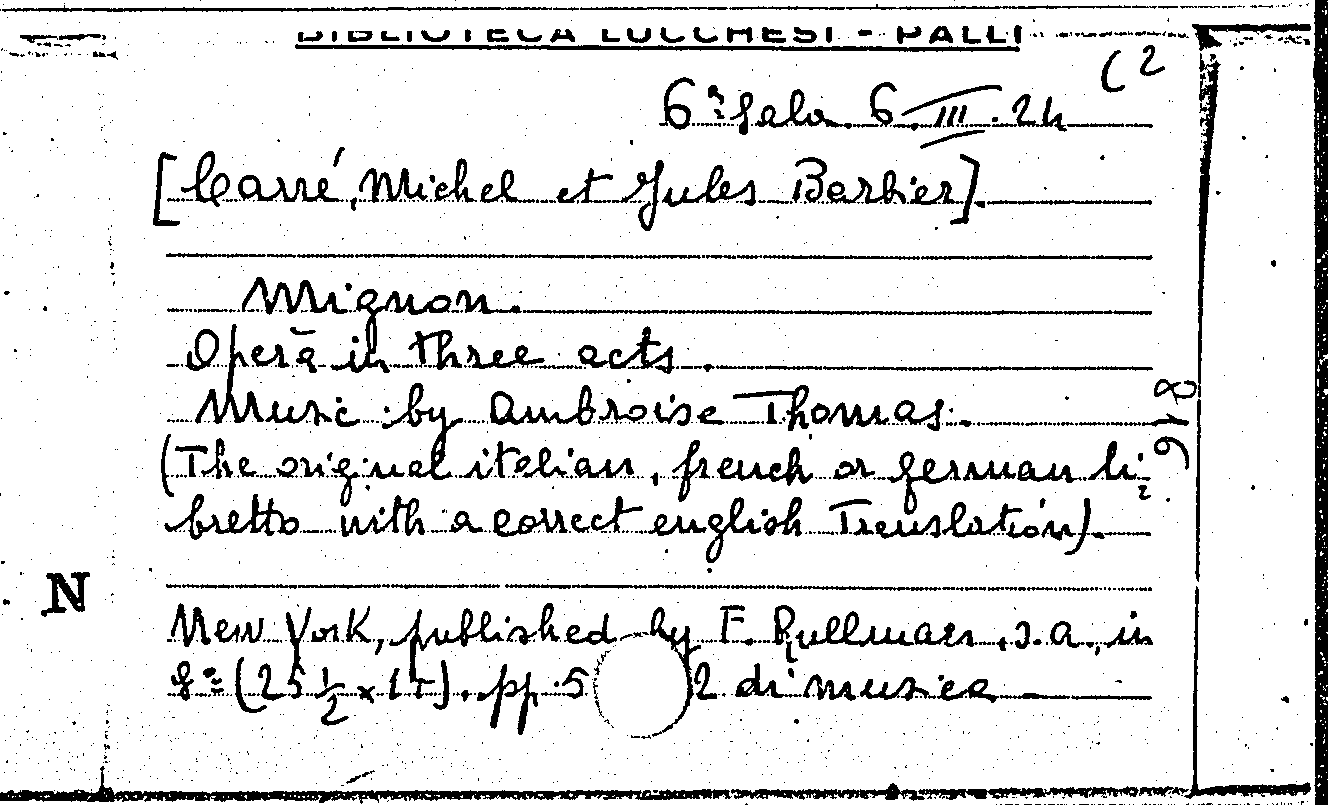 BIBLIOTECA LUCCHESI - PALLI
C 2
6ª Sala. 6. III. 24
[Carré, Michel et Jules Barbier].
Mignon.
Opera in three acts.
Music by Ambroise Thomas.
(The original italian, french or german li=
bretto with a correct english Translation).
918
N
New York, published by F. Rullman, s.a., in
8º (25 1/2 x 17). pp. 5 2 di musica